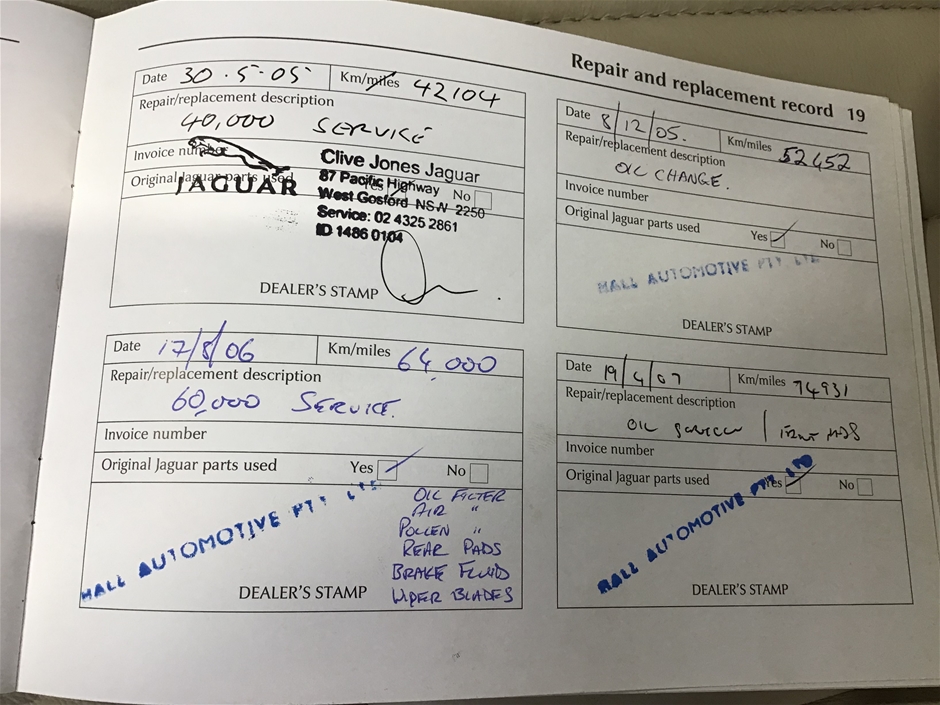 Repair and replacement record 19
Date 30.5.05 Km/miles 42104
Repair/replacement description
40,000 SERVICE
Invoice number
Original Jaguar parts used Yes No
JAGUAR
Clive Jones Jaguar
87 Pacific Highway
West Gosford NSW 2250
Service: 02 4325 2861
ID 1486 0104
DEALER'S STAMP
Date 8/12/05. Km/miles 52452
Repair/replacement description
OIL CHANGE.
Invoice number
Original Jaguar parts used Yes No
HALL AUTOMOTIVE PTY LTD
DEALER'S STAMP
Date 17/8/06 Km/miles 64,000
Repair/replacement description
60,000 SERVICE.
Invoice number
Original Jaguar parts used Yes No
HALL AUTOMOTIVE PTY LTD
OIL FILTER
AIR "
POLLEN "
REAR PADS
BRAKE FLUID
WIPER BLADES
DEALER'S STAMP
Date 19/4/07 Km/miles 74931
Repair/replacement description
OIL SERVICE / FRONT PADS
Invoice number
Original Jaguar parts used Yes No
HALL AUTOMOTIVE PTY LTD
DEALER'S STAMP